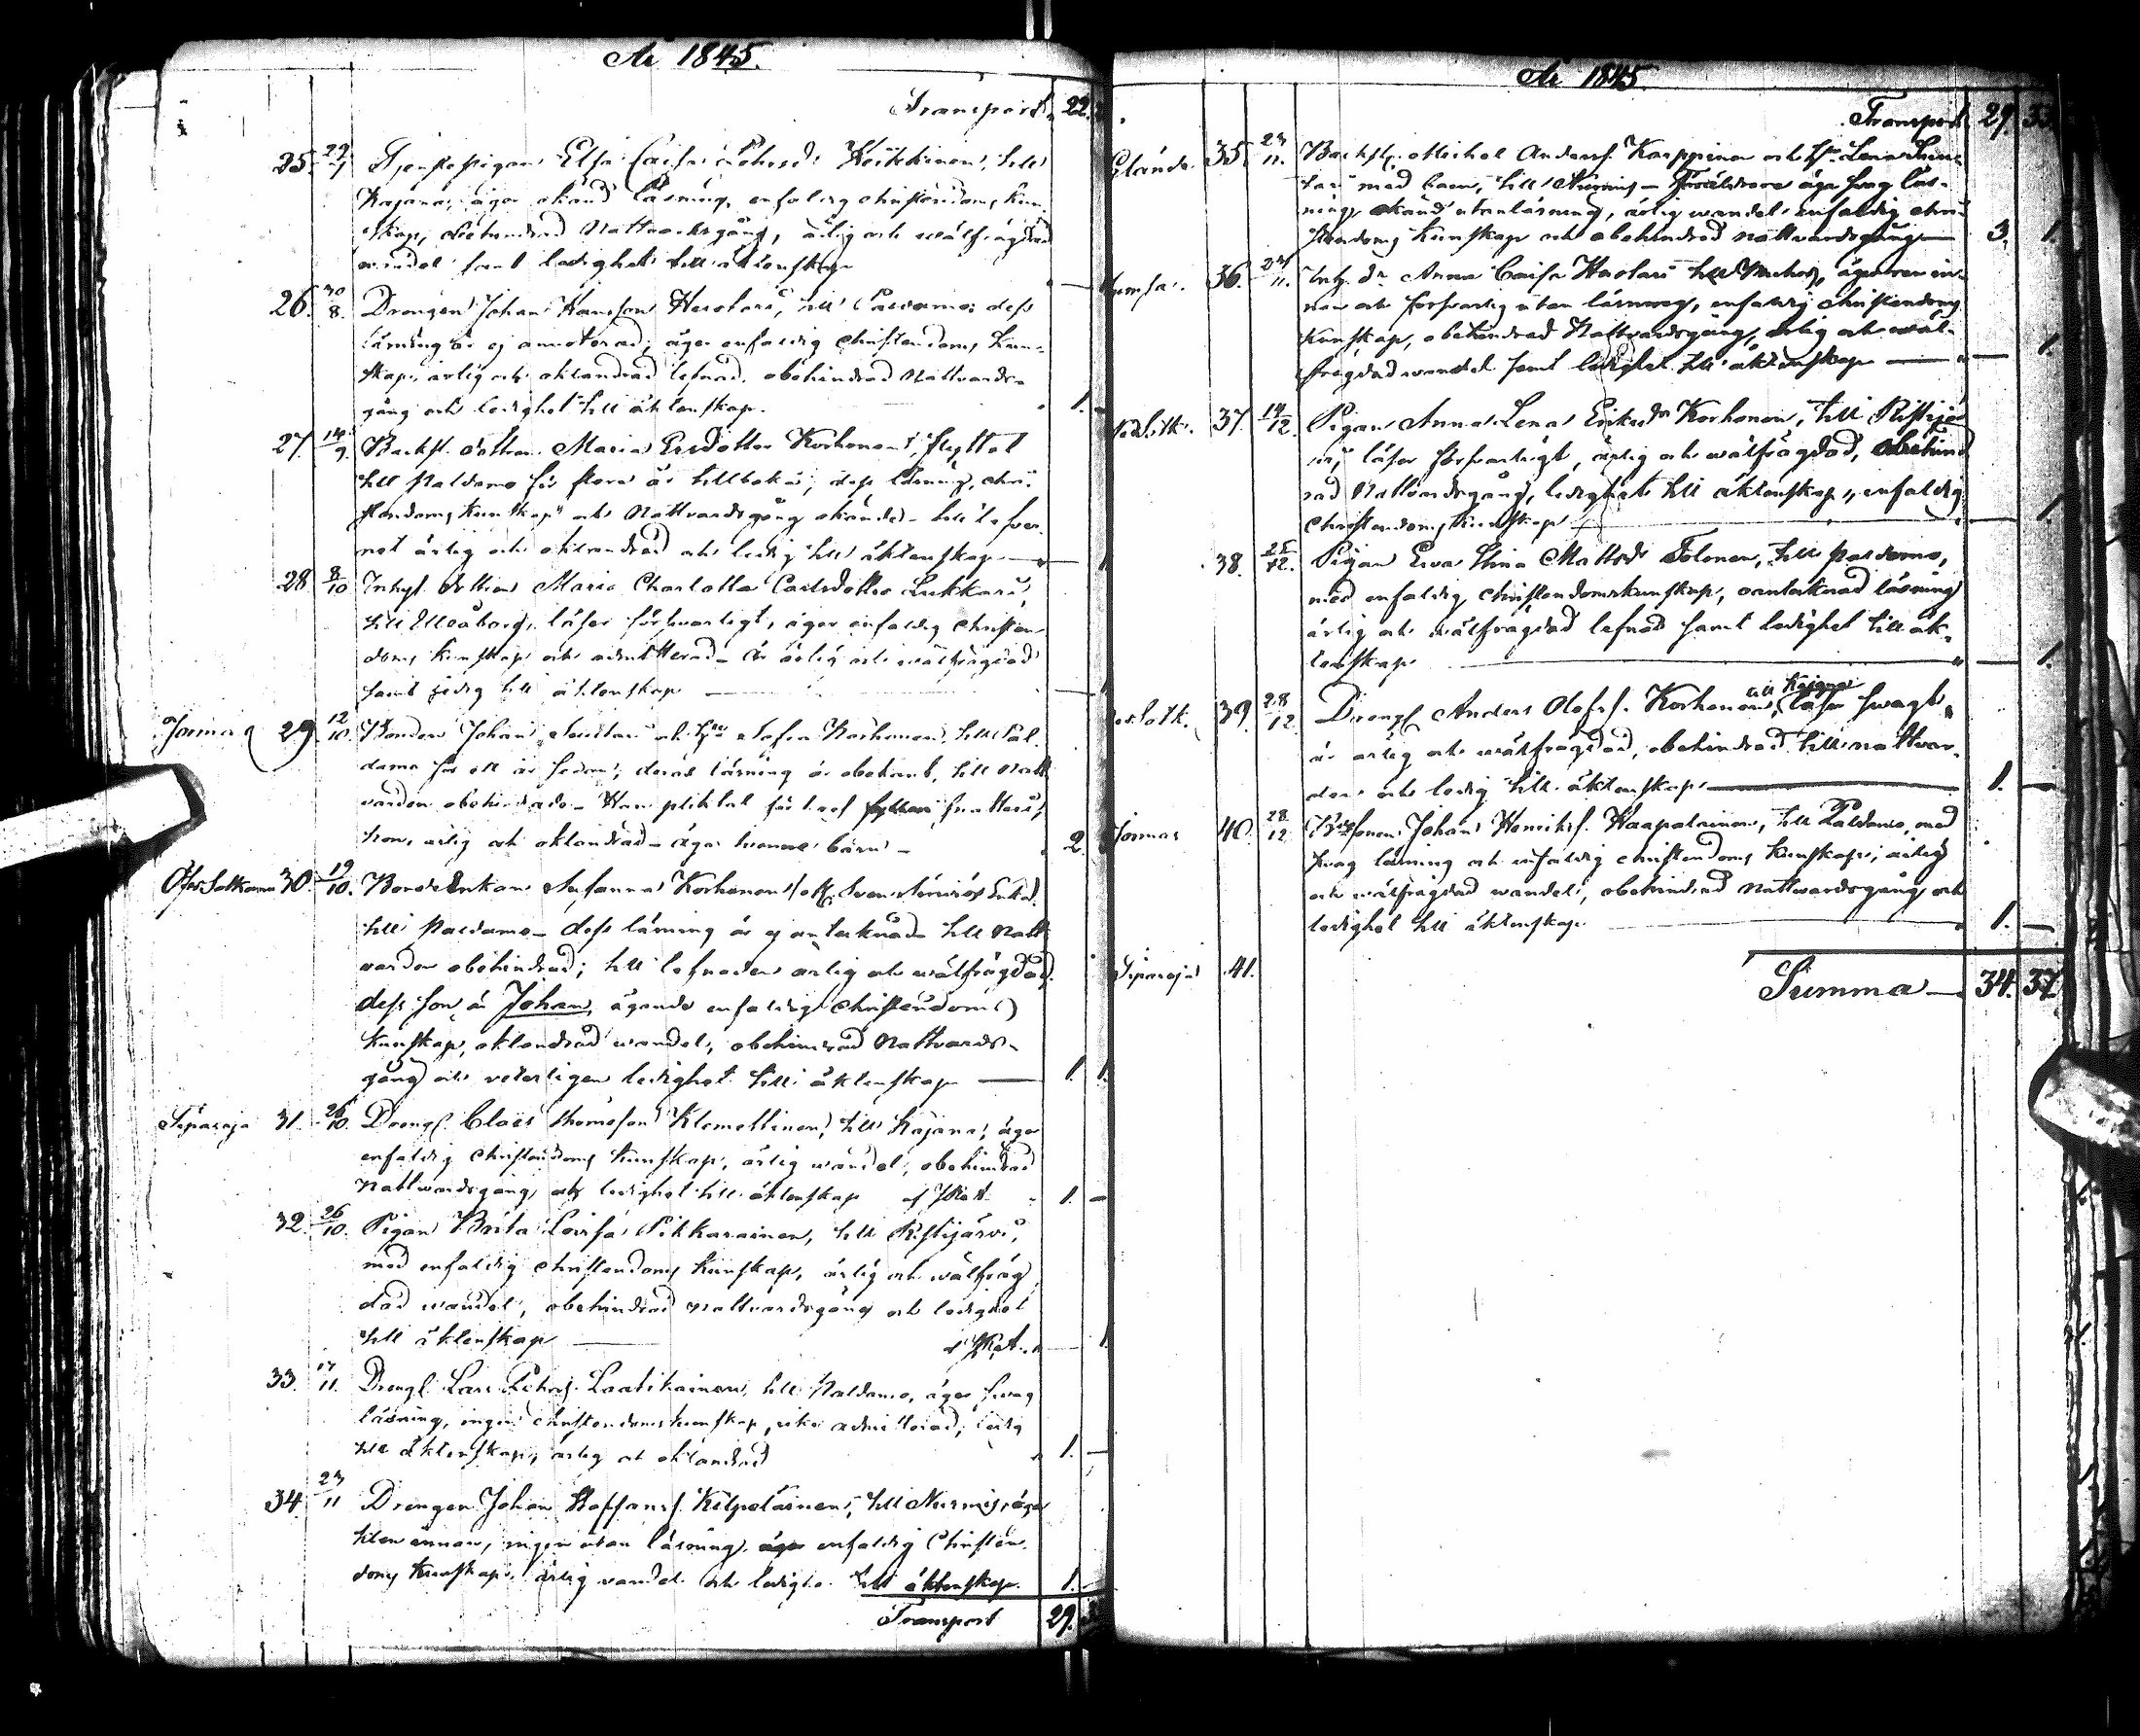 År 1845.
Transport 22.
25. 22/7 Tjenstepigan Elsa Caisa Pehrsd. Keikkinen, till
Kajana, äger okänd läsning, enfaldig christendoms kun-
skap, obehindrad Nattvardsgång, ärlig och wälfrägdad
wandel samt ledighet till äktenskap
26. 30/8. Drengen Johan Hansson Heolari, till Paldamo; dess
läsning är ej annoterad; äger enfaldig christendoms kun-
skap, ärlig och oklandrad lefnad, obehindrad Nattvards-
gång och ledighet till äktenskap. 1.
27. 14/9. Backst. dottren Maria Ersdotter Korhonen, flyttat
till Paldamo för flera år tillbaka; dess läsning, chri-
stendoms kunskap och Nattvardsgång okände - till lefver-
net ärlig och oklandrad och ledig till äktenskap 1
28. 8/10 Inhys. dottren Maria Charlotta Carlsdotter Lukkari,
till Uleåborg, läser försvarligt, äger enfaldig christen-
doms kunskap och admitterad - är ärlig och wälfrägdad
samt ledig till äktenskap
Jormua 29. 12/10. Bonden Johan och hu Sofia Korhonen, till Pal-
damo för ett år sedan; deras läsning är obekant, till Natt-
varden obehindrade - Han pliktat för
hon, ärlig och oklandrad - äga barn - 2.
Öfver Sotkamo 30. 19/10. Bonde Enkan Susanna Korhonen
till Paldamo - dess läsning är ej antecknad - till Natt-
varden obehindrad; till lefnaden ärlig och wälfrägdad.
dess son är Johan, ägande enfaldig christendoms
kunskap, oklandrad wandel, obehindrad Nattvards-
gång och veterligen ledighet till äktenskap 1. 1.
Tipasoja 31. 26/10. Drengs. Claës Thomasson Klemettinen, till Kajana, äger
enfaldig christendoms kunskap, ärlig wandel, obehindrad
Nattwardsgång, och ledighet till äktenskap 1. -
32. 26/10. Pigan Brita Lovisa Pikkarainen, till Ristijärvi,
med enfaldig christendoms kunskap, ärlig och wälfräg-
dad wandel, obehindrad nattvardsgång och ledighet
till äktenskap 1
33. 17/11. Drengs. Lars Pehrs. Laatikainen, till Paldamo, äger swag
läsning, ingen christendoms kunskap, icke admitterad, ledig
till äktenskap, ärlig och oklandrad 1. -
34. 23/11 Drengen Johan Staffans. Kilpeläinen, till Nurmis, äger
klen innan, ingen utan läsning, äger enfaldig Christen-
doms kunskap, ärlig vandel och ledighet till äktenskap. 1.
Transport 29.
År 1845.
Transport 29. 33.
35. 23/11. Backst. Michel Anders. Karppinen och hu Lena
med barn, till Nurmis - Föräldrarne äga swag läs-
ning, okänd utanläsning, ärlig wandel, enfaldig chri-
stendoms kunskap och obehindrad nattvardsgång 3. 1.
36. 23/11. Inh. dr Anna Caisa Heolari till äger ren in-
nan och försvarlig utan läsning, enfaldig christendoms
kunskap, obehindrad Nattvardsgång, ärlig och wäl-
frägdad wandel samt ledighet till äktenskap 1.
37. 14/12. Pigan Anna Lena Eriksdr Korhonen, till Ristijär-
vi, läser försvarligt, ärlig och wälfrägdad, obehind-
rad Nattvardsgång, ledighet till äktenskap, enfaldig
christendoms kunskap 1.
38. 25/12. Pigan Eva Stina Mattsd. Tolonen, till Paldamo,
med enfaldig christendomskunskap, oantecknad läsning
ärlig och wälfrägdad lefnad samt ledighet till äk-
tenskap 1.
39. 28/12 Drengs. Anders Olofs. Korhonen, till Kajana läser swagt,
är ärlig och wälfrägdad, obehindrad till nattvar-
den och ledig till äktenskap 1. -
Jormua 40. 28/12 Johan Henriks. Haapalainen, till Paldamo, med
swag läsning och enfaldig christendoms kunskap, ärlig
och wälfrägdad wandel, obehindrad Nattwardsgång, och
ledighet till äktenskap 1. -
Tipasoja 41.
Summa 34. 37